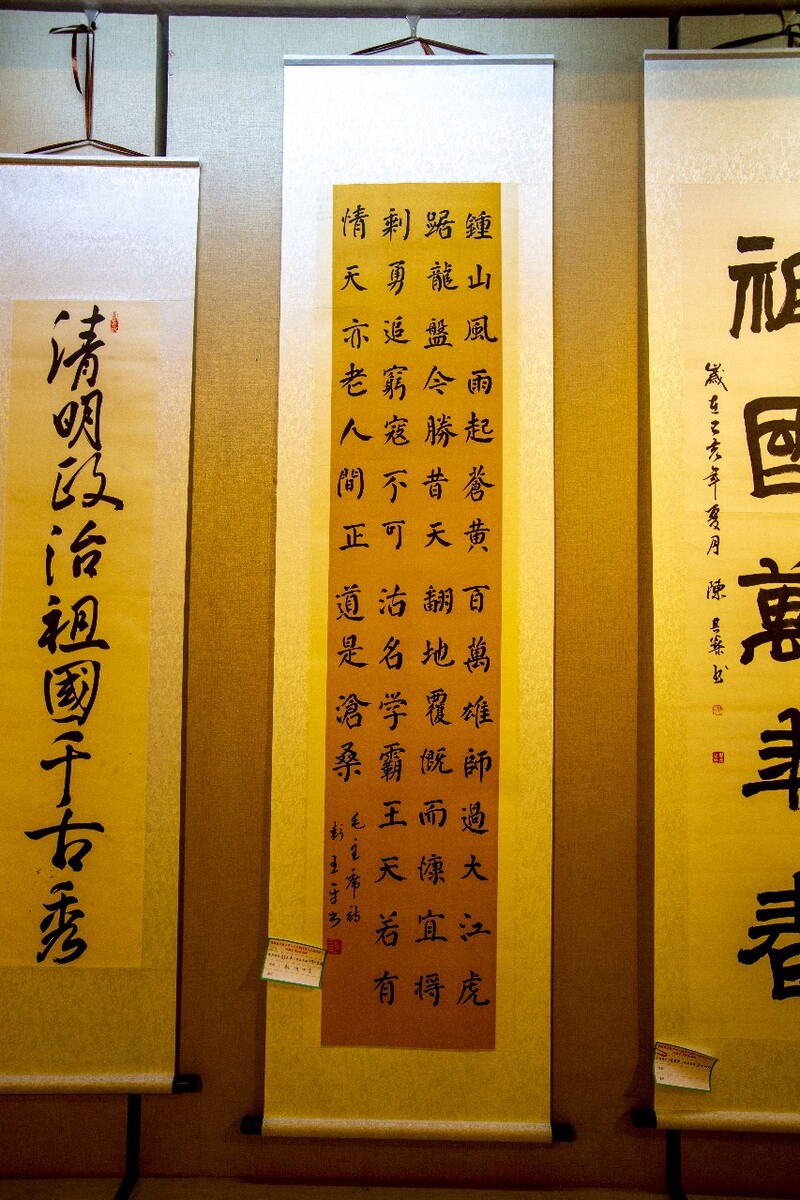 祖國萬年春
歲在己亥年夏月 陳
鍾山風雨起蒼黄百萬雄師過大江虎
踞龍盤今勝昔天翻地覆慨而慷宜將
剩勇追窮寇不可沽名学霸王天若有
情天亦老人間正道是滄桑
毛主席
清明政治祖國千古秀